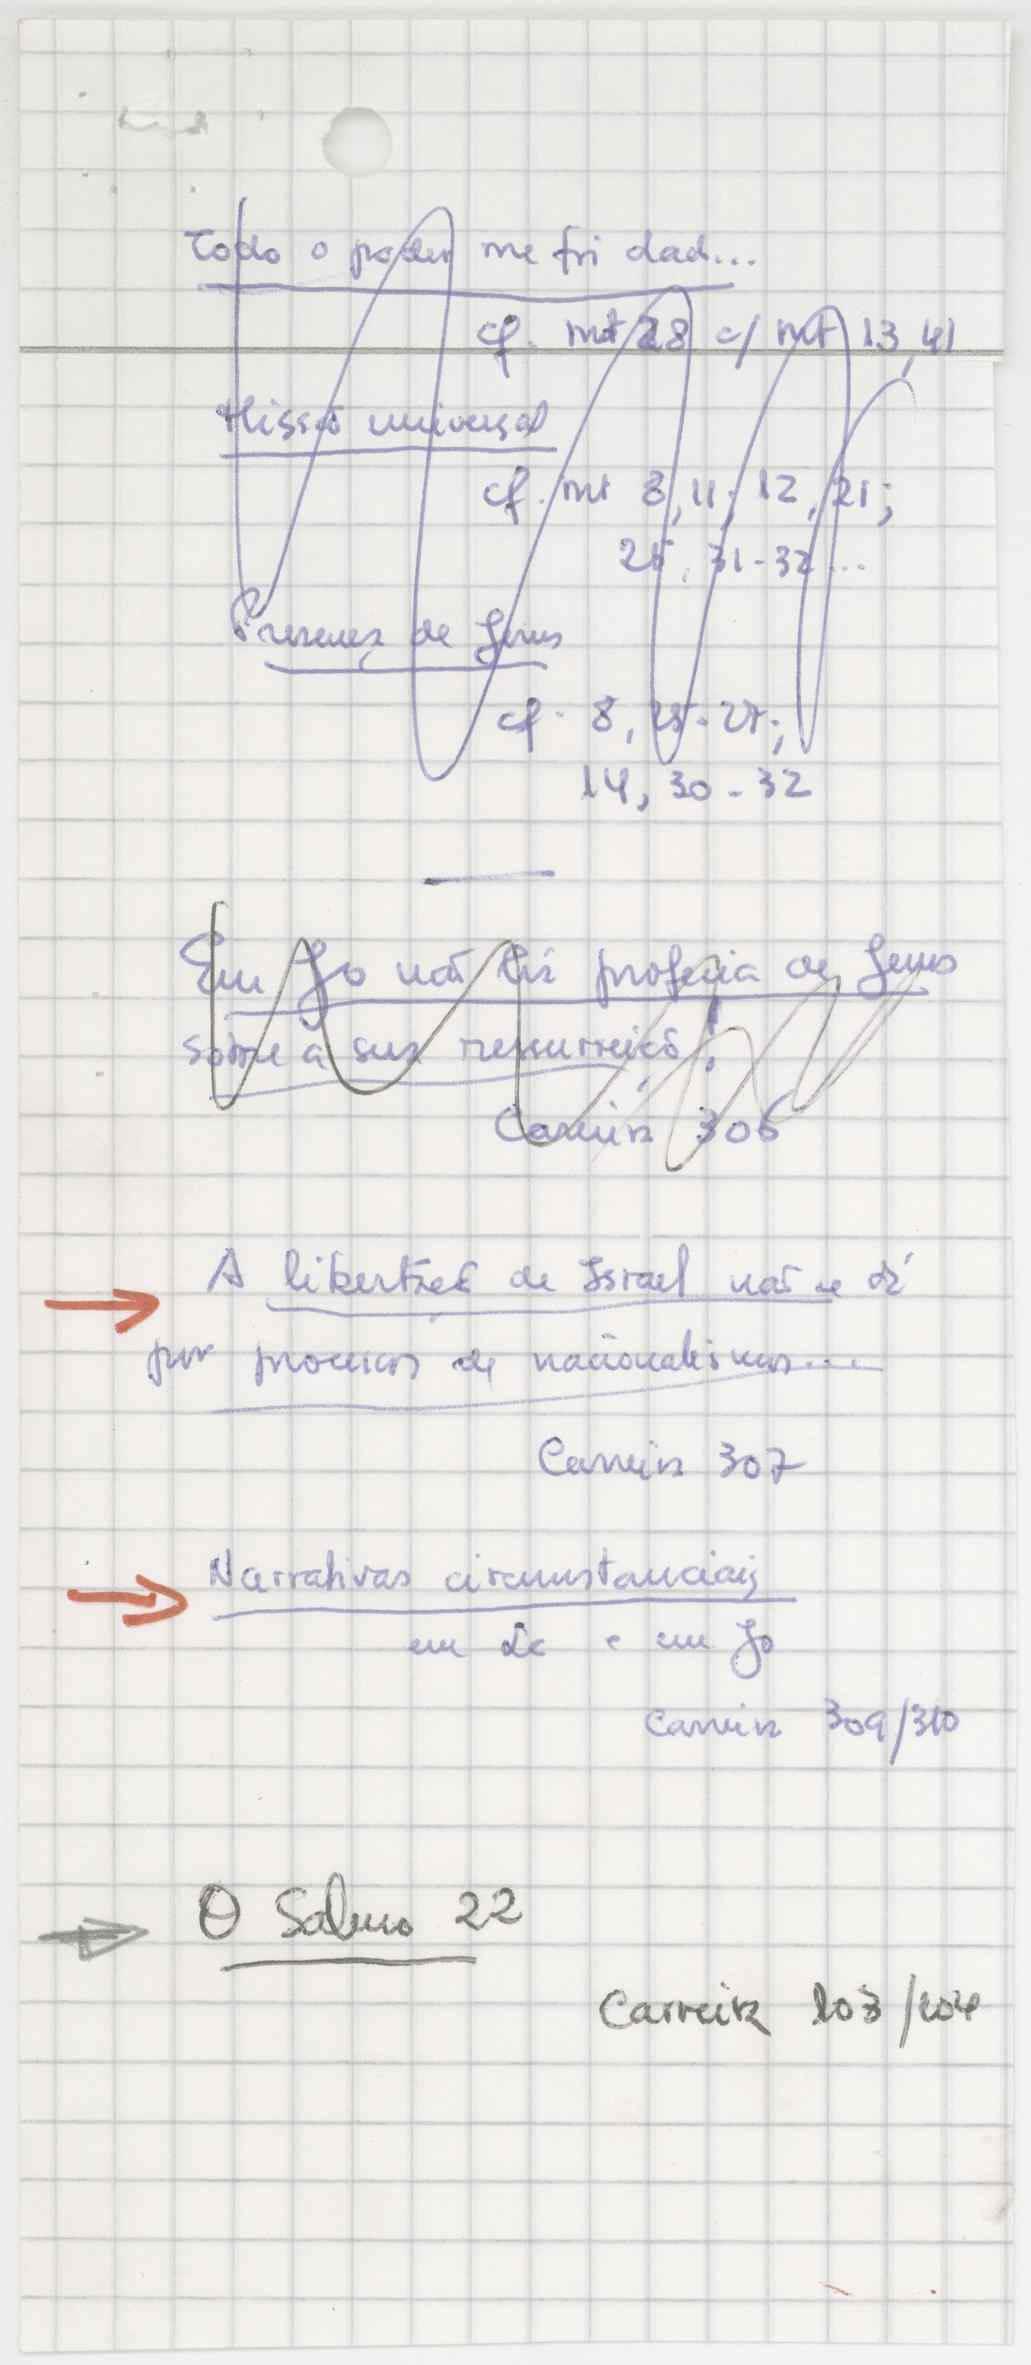 Todo o poder me foi dad...
cf. Mt 28 c/ Mt 13,41
Missão universal
cf. Mt 8,11; 12,21;
25,31-32...
Presença de Jesus
cf. 8,25-27;
14,30-32
Em Jo não há profecia de Jesus
sobre a sua ressurreição!
Carreira 306
A libertação de Israel não se dá
por processos de nacionalismos....
Carreira 307
Narrativas circunstanciais
em Lc e em Jo
Carreira 309/310
O Salmo 22
Carreira 103/104